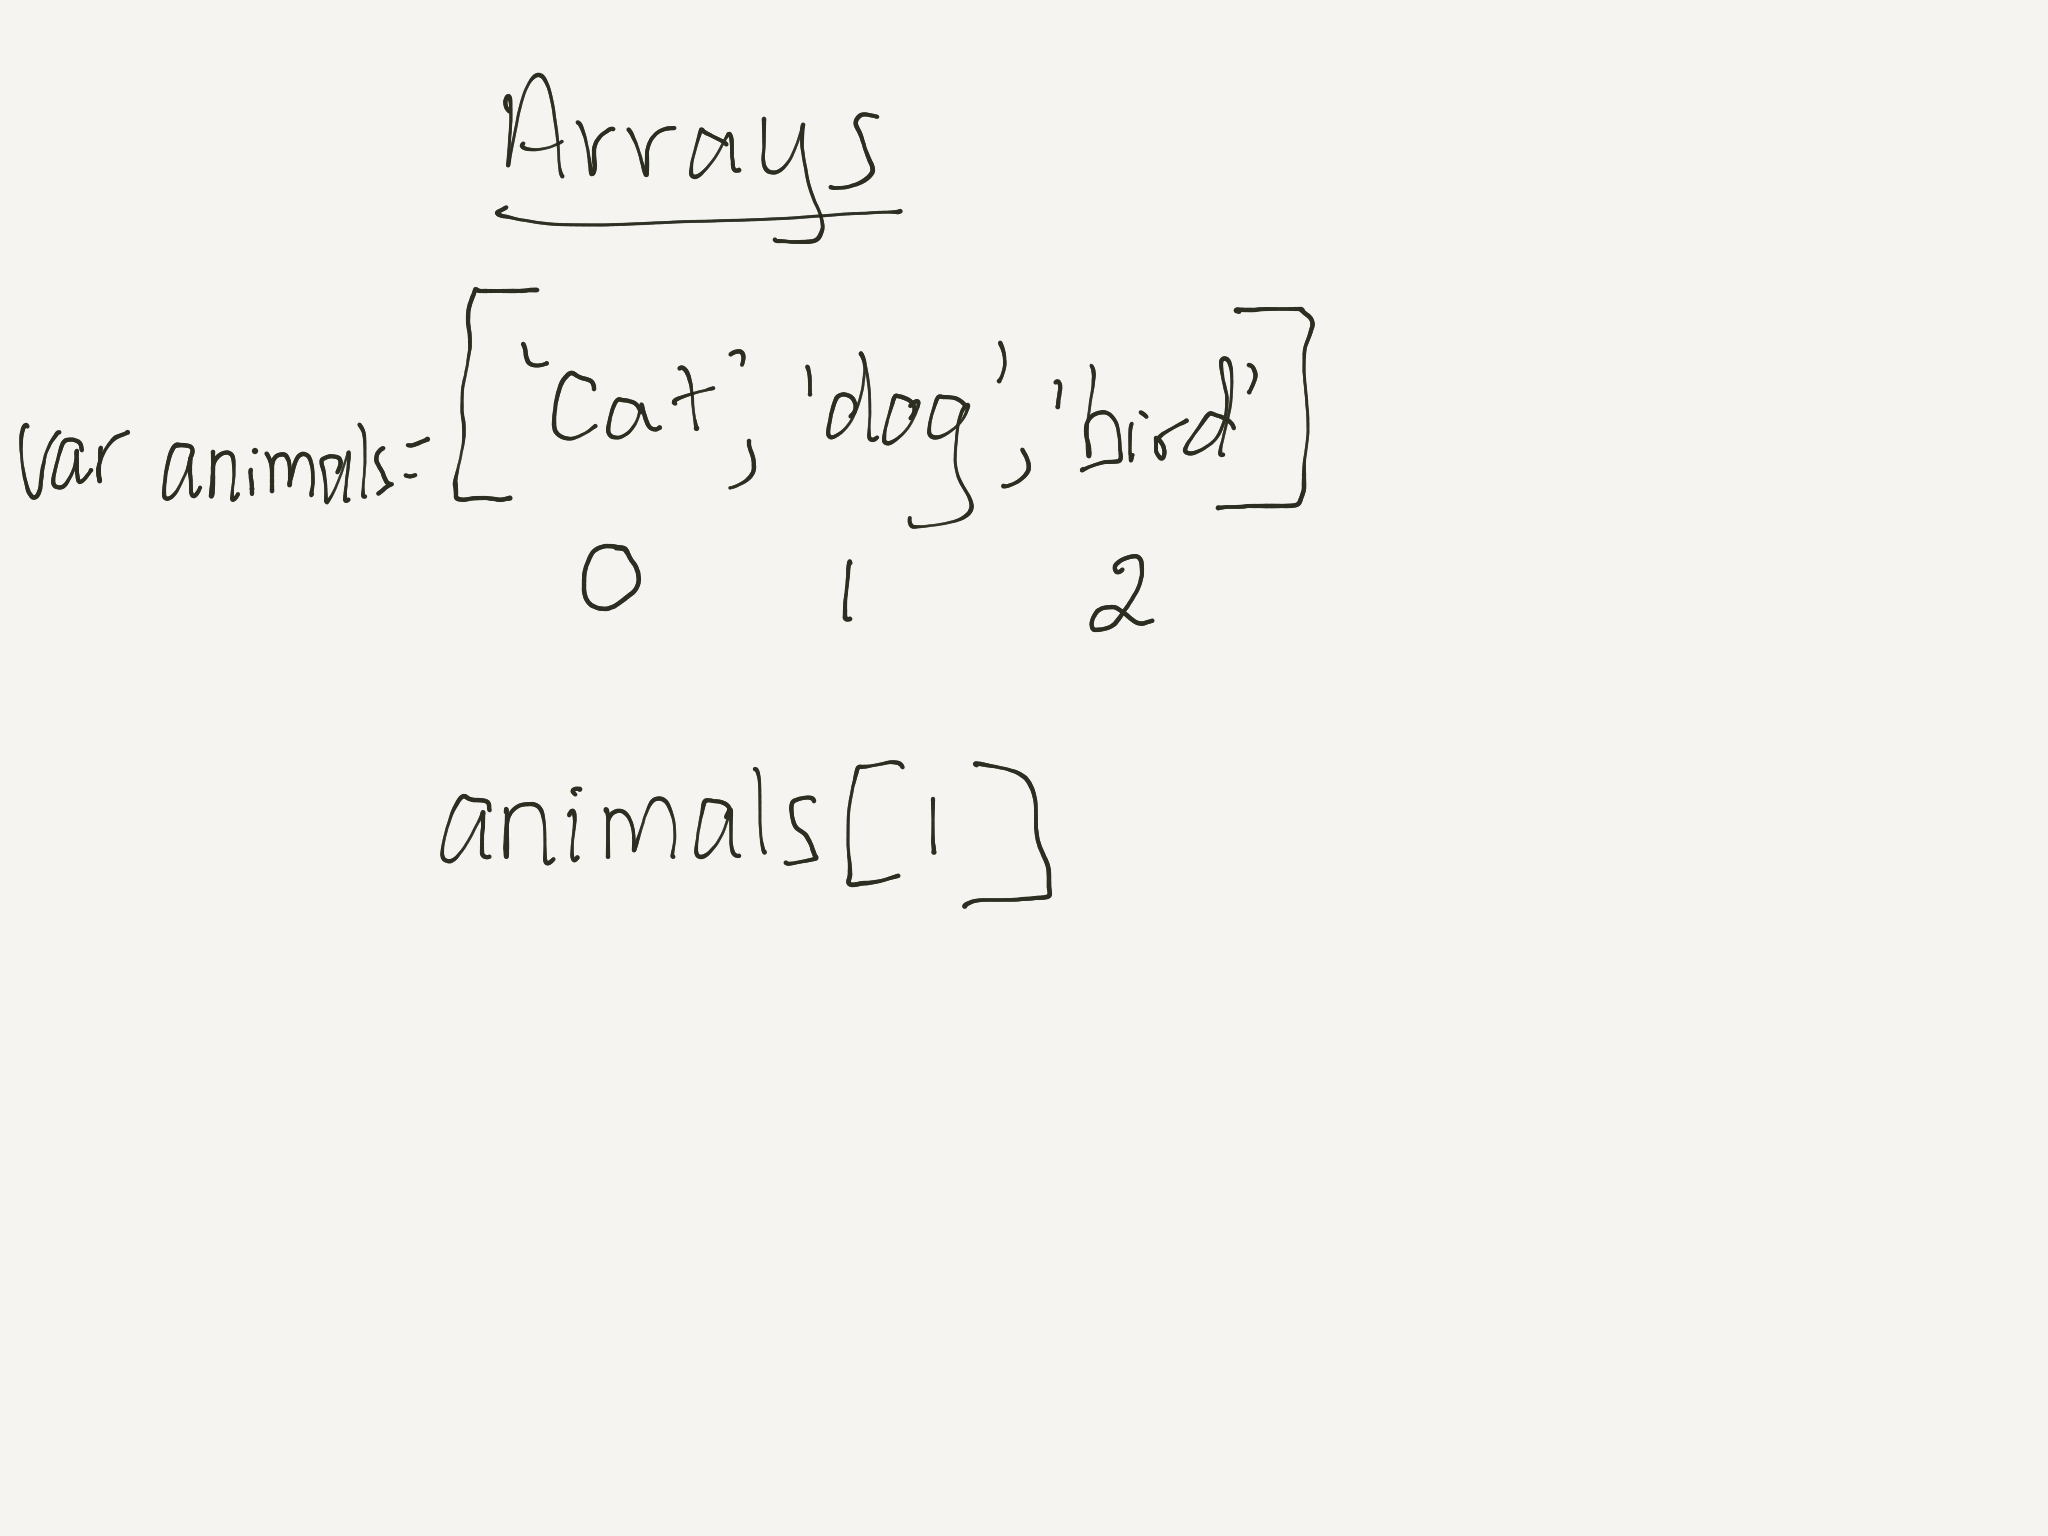 Arrays
var animals = ['Cat', 'dog', 'bird']
0 1 2
animals[1]